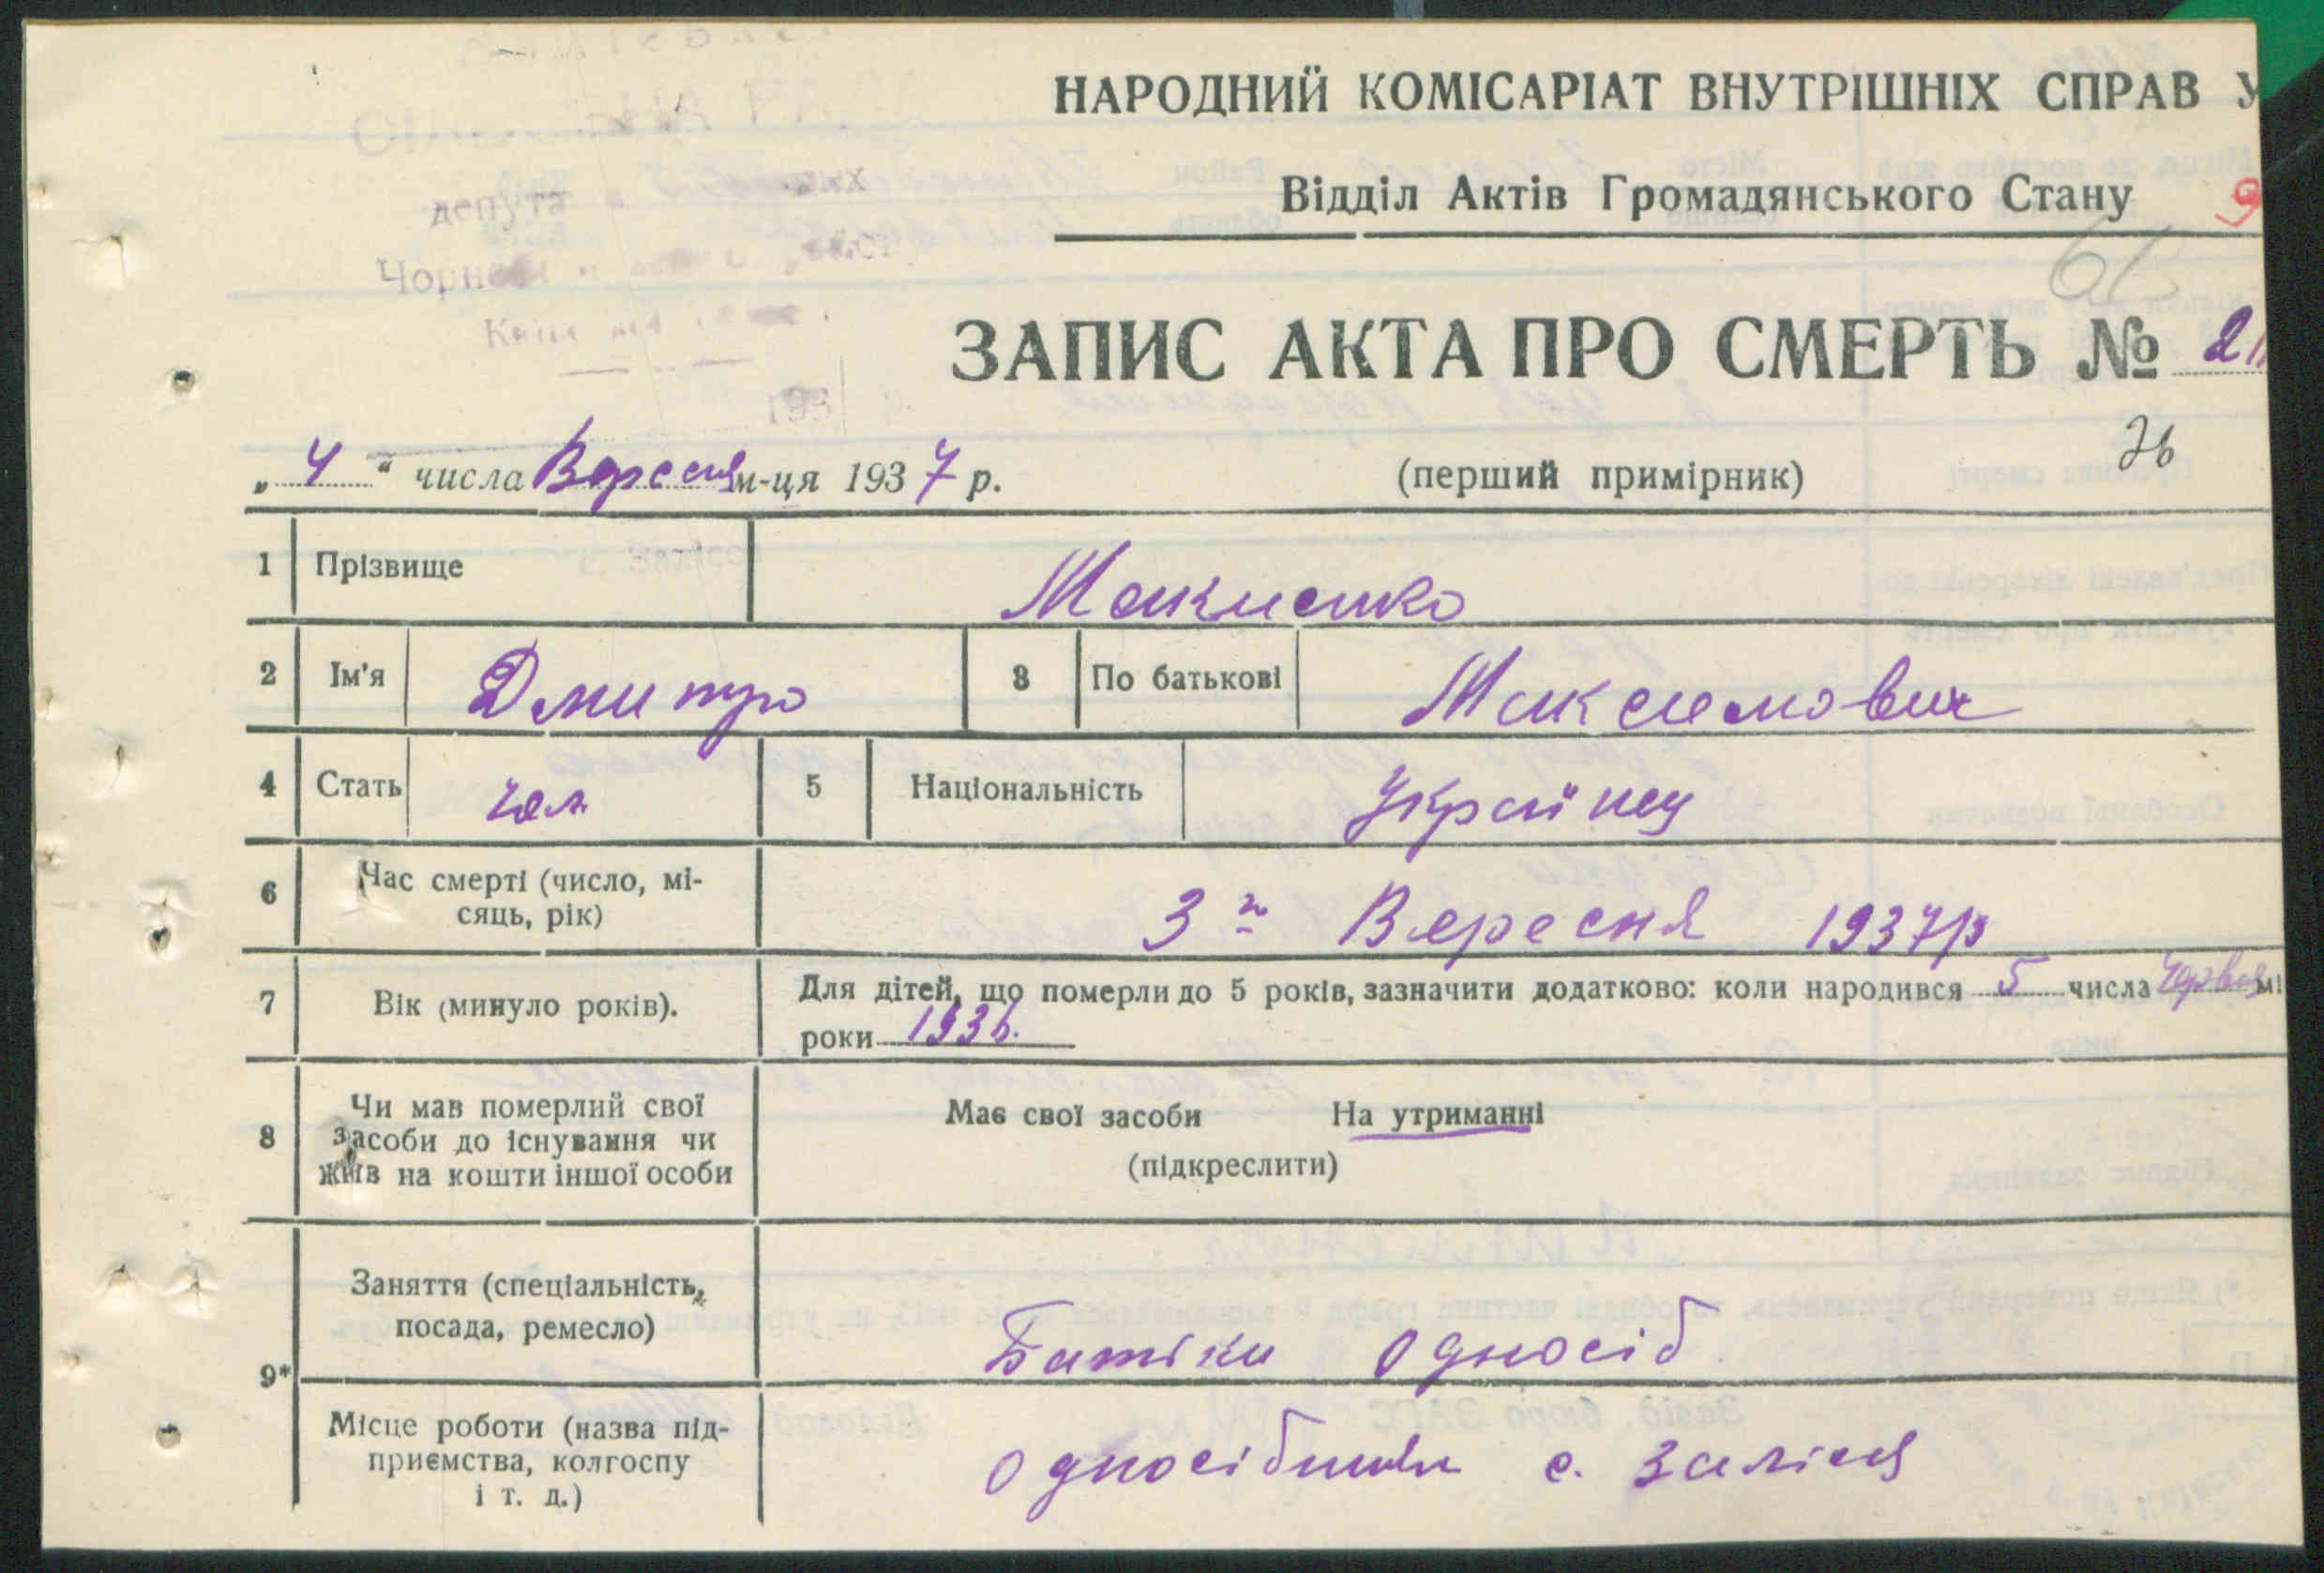 НАРОДНИЙ КОМІСАРІАТ ВНУТРІШНІХ СПРАВ У
Відділ Актів Громадянського Стану 9
ЗАПИС АКТА ПРО СМЕРТЬ № 2
„4“ числа Вересня м-ця 1937 р. (перший примірник) 36
с. Залісся
1 Прізвище Макиенко
2 Ім'я Дмитро 3 По батькові Максимович
4 Стать чол. 5 Національність Українец
6 Час смерті (число, мі-
сяць, рік) 3го Вересня 1937р
7 Вік (минуло років). Для дітей, що померли до 5 років, зазначити додатково: коли народився 5 числа Червня мі
роки 1936.
8 Чи мав померлий свої
засоби до існування чи
жив на кошти іншої особи
Має свої засоби На утриманні
(підкреслити)
9* Заняття (спеціальність,
посада, ремесло) Батьки односіб
Місце роботи (назва під-
приємства, колгоспу
і т. д.) с. Заліся